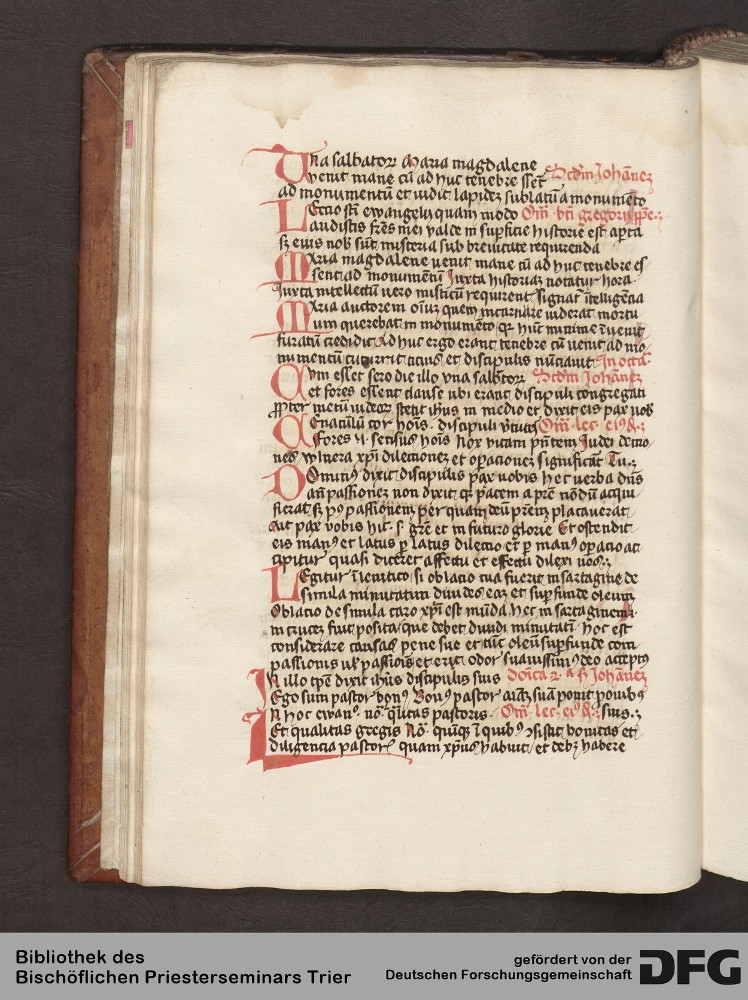 Una sabbatorum Maria magdalene
venit mane cū ad huc tenebre essēt Scdm Johāneʒ
ad monumentū et vidit lapideʒ sublatū a monumēto
Leccio scī ewangelij quam modo Om̄ bti gregorij ppe
audistis frēs mei valde in supficie historie est apta
sʒ eius nob sūt misteria sub brevitate requirenda
Maria magdalene venit mane cū ad huc tenebre es
sent ad monumentū Juxta historiaʒ notatur hora
Juxta intellectū vero misticū requirent signat ītelligēcia
Maria auctorem oīuʒ quem in carne viderat mortu
um querebat in monumēto qʒ hūc minime īvenit
furatū credidit Ad huc ergo erant tenebre cū venit ad mo
numentū cucurrit cicius et discipulis nūciavit In octa
Cum esset sero die illo vna sabbator Scdm Johāneʒ
et fores essent clause vbi erant discipuli congregati
ppter metū iudeoʒ stetit ihus in medio et dixit eis pax vob
Cenaculū cor hōis discipuli vtutes Om̄ lec eiꝰ
Fores v sensus hōis Nox vitam pntem Judei demo
nes wlnera xpi dilectioneʒ et opacioneʒ significāt
Dominꝰ dixit discipulis pax vobis hec verba dns
an passioneʒ non dixit qʒ pacem a pre nōdū acqui
sierat sʒ pꝰ passionem per quam deū prem placaverat
Ait pax vobis hic s. gre et in futuro glorie Et ostendit
eis manꝰ et latus p latus dilectio et p manꝰ opacio ac
cipitur quasi diceret affectu et effectu dilexi vos
Legitur ī levitico si oblacio tua fuerit in sartagine de
simila minutatim divides eaʒ et supfunde oleum
Oblacio de simila caro xpi est mūda hec in sartaginem
in cruceʒ fuit posita que debet dividi minutatī hoc est
considerare causas pene sue et tūc oleū supfunde com
passionis vl passiois et erit odor suavissimꝰ deo acceptꝰ
In illo tpe dixit ihus discipulis suis Doīca 2 a p Johāneʒ
Ego sum pastor bonꝰ Bonꝰ pastor aīaʒ suā ponit p ovibꝰ
In hoc ewanꝰ no qlitas pastoris Om̄ lec eiꝰ suis
Et qualitas gregis No quīqʒ ī quibꝰ ɔsistit bonitas et
diligencia pastor quam xpus habuit et debʒ habere
Bibliothek des
Bischöflichen Priesterseminars Trier
gefördert von der
Deutschen Forschungsgemeinschaft DFG